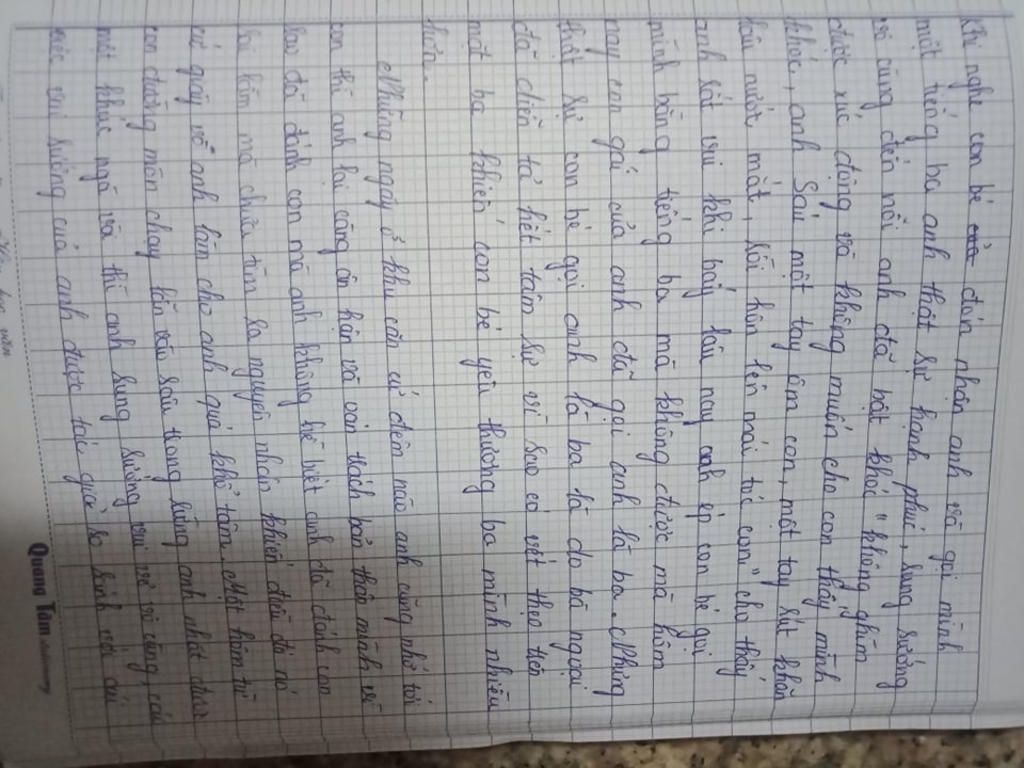 Khi nghe con bé đón nhận anh và gọi mình
một tiếng ba anh thật sự hạnh phúc, sung sướng
vô cùng đến nỗi anh đã bật khóc " không ghìm
được xúc động và không muốn cho con thấy mình
khóc, anh Sáu một tay ôm con, một tay rút khăn
lau nước mắt, rồi hôn lên mái tóc con" cho thấy
anh rất vui khi bấy lâu nay anh ép con bé gọi
mình bằng tiếng ba mà không được mà hôm
nay con gái của anh đã gọi anh là ba. Nhưng
thật sự con bé gọi anh là ba là do bà ngoại
đã diễn tả hết tâm sự vì sao có vết thẹo trên
mặt ba khiến con bé yêu thương ba mình nhiều
hơn.
Những ngày ở khu căn cứ đêm nào anh cũng nhớ tới
con thì anh lại càng ân hận và oán trách bản thân mình vì
sao đã đánh con mà anh không hề biết anh đã đánh con
mà chưa tìm ra nguyên nhân khiến điều đó nó
cứ giày vò anh làm cho anh quá khổ tâm. Một hôm từ
con đường mòn chạy lẫn sâu trong rừng anh nhặt được
một khúc ngà voi thì anh sung sướng vui vẻ vô cùng, cái
việc vui sướng của anh được tác giả so sánh với cái
Quang Tâm